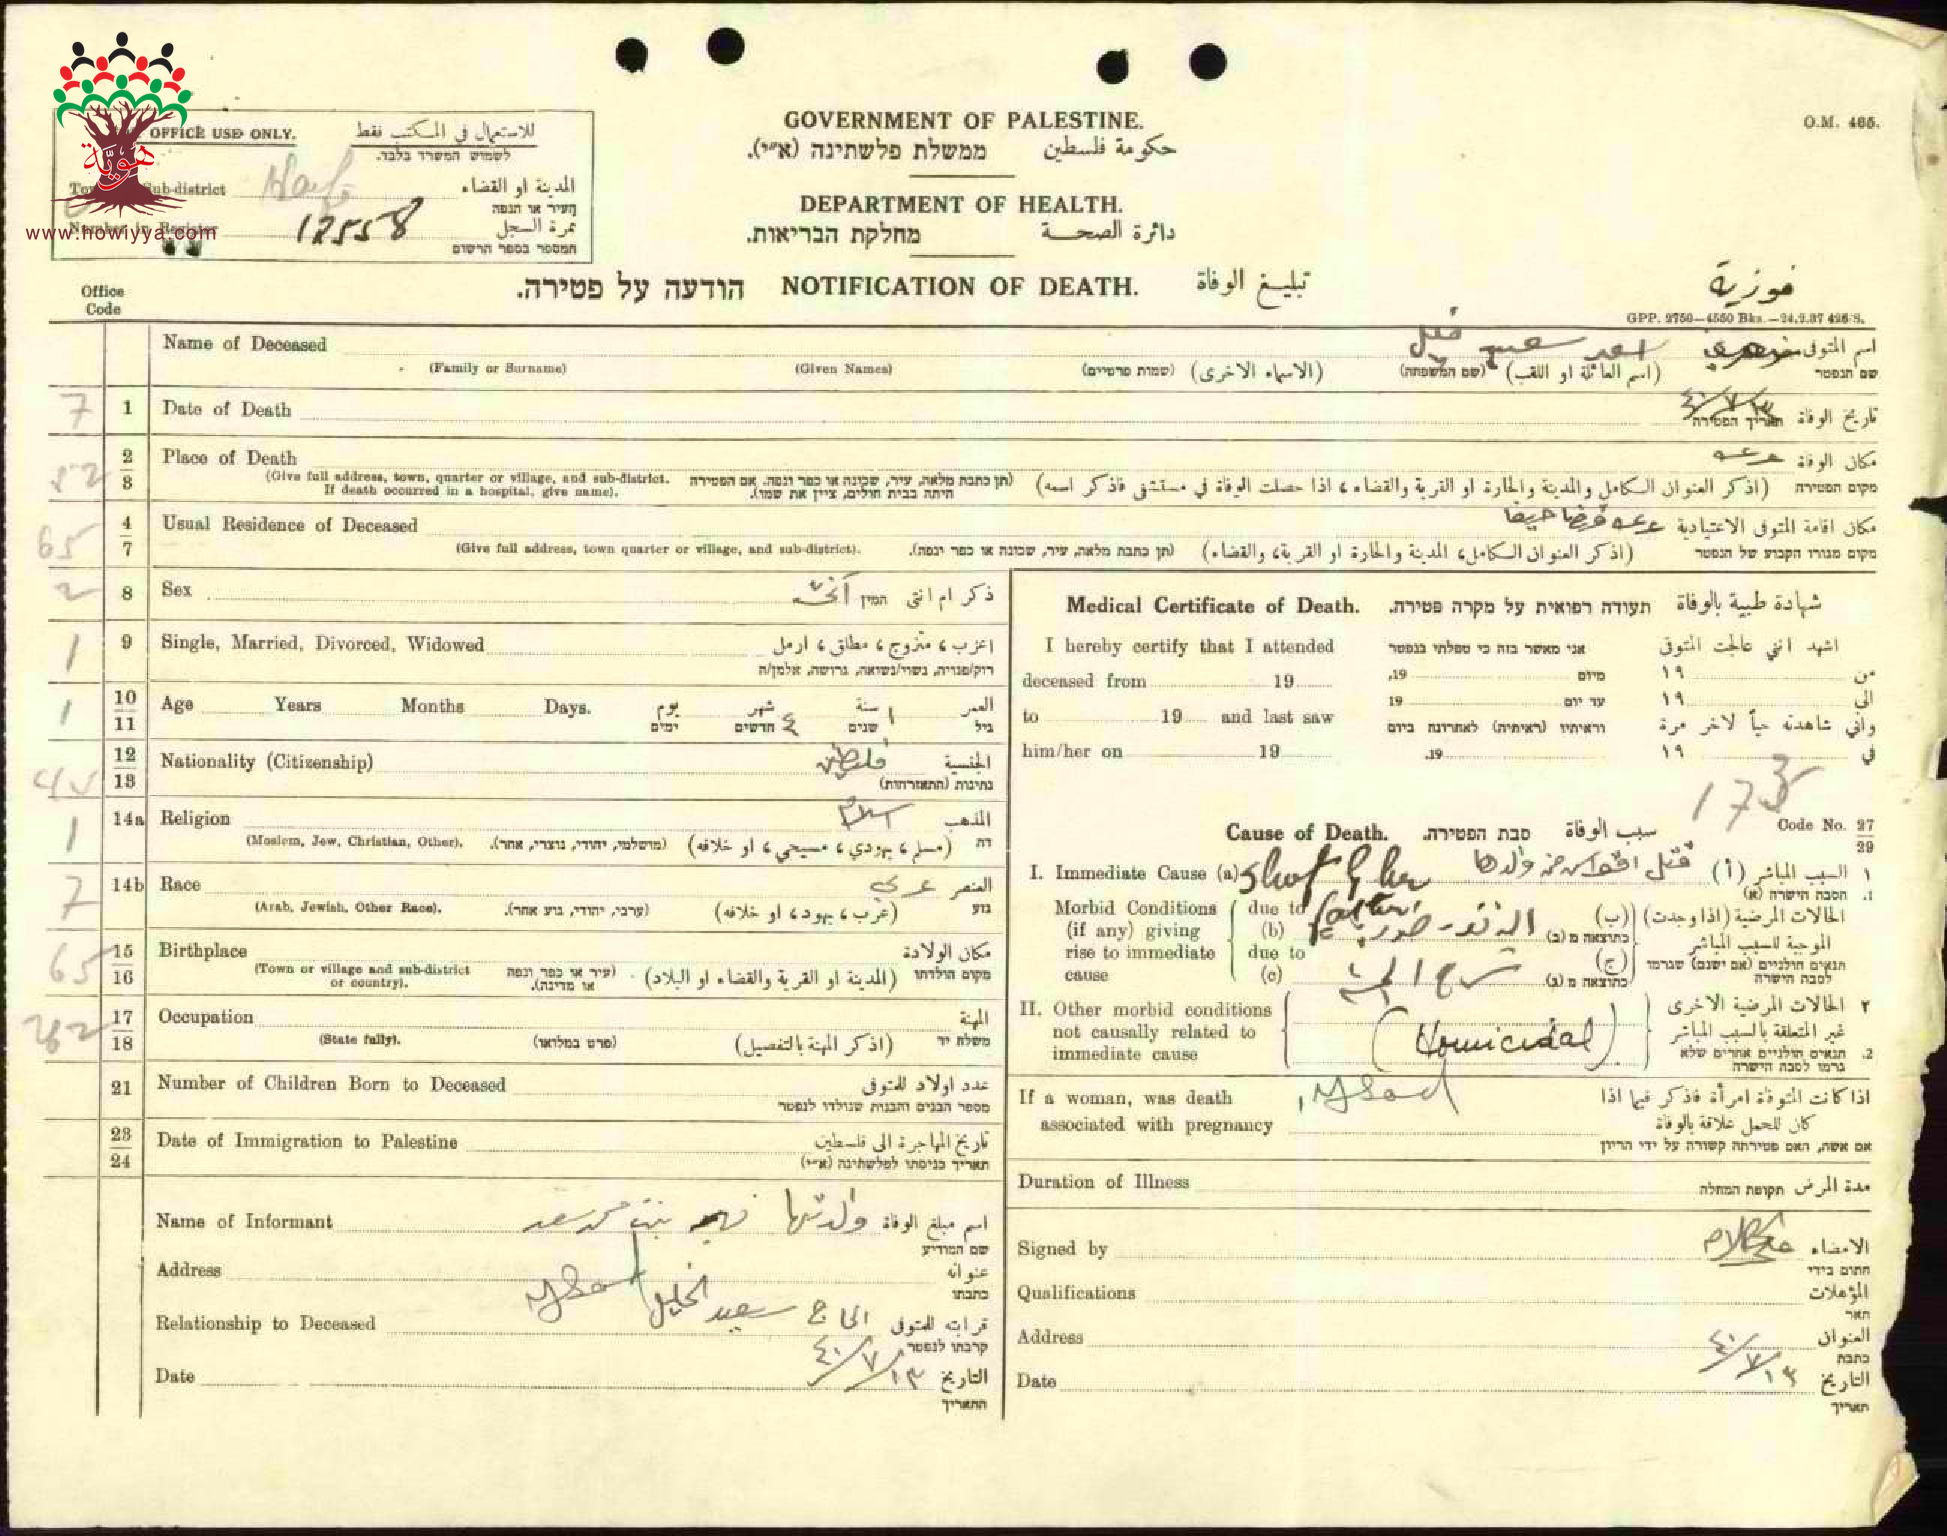 O.M. 465.
FOR OFFICE USE ONLY. للاستعمال في المكتب فقط
לשמוש המשרד בלבד.
Sub-district Haifa المدينة او القضاء
העיר או הנפה
www.howiyya.com
هوية
Number in Register 12558 نمرة السجل
המספר בספר הרשום
GOVERNMENT OF PALESTINE.
ממשלת פלשתינה (א״י). حكومة فلسطين
DEPARTMENT OF HEALTH.
מחלקת הבריאות. دائرة الصحة
הודעה על פטירה. NOTIFICATION OF DEATH. تبليغ الوفاة
فوزية
GPP. 2750—4550 Bks.—24.2.37 426/S.
Office
Code
Name of Deceased اسعد سعيد اسم المتوفى
(Family or Surname) (Given Names) (שמות פרטיים) (الاسماء الاخرى) (שם המשפחה) (اسم العائلة او اللقب) שם הנפטר
7 1 Date of Death ١٣/٧/٤٠ تاريخ الوفاة
תאריך הפטירה
52 2 3 Place of Death عرعره مكان الوفاة
(Give full address, town, quarter or village, and sub-district. תן כתבת מלאה, עיר, שכונה או כפר ונפה. אם הפטירה (اذكر العنوان الكامل والمدينة والحارة او القرية والقضاء، اذا حصلت الوفاة في مستشفى فاذكر اسمه) מקום הפטירה
If death occurred in a hospital, give name). היתה בבית חולים, ציין את שמו).
65 4 7 Usual Residence of Deceased عرعره قضا حيفا مكان اقامة المتوفى الاعتيادية
(Give full address, town quarter or village, and sub-district). (תן כתבת מלאה, עיר, שכונה או כפר ונפה). (اذكر العنوان الكامل، المدينة والحارة او القرية، والقضاء) מקום מגורו הקבוע של הנפטר
2 8 Sex انثى המין ذكر ام انثى
1 9 Single, Married, Divorced, Widowed اعزب، متزوج، مطلق، ارمل
רוק/פנויה, נשוי/נשואה, גרושה, אלמן/ה
1 10 11 Age Years Months Days. يوم شهر ٤ سنة ١ العمر
ימים חדשים שנים גיל
45 12 13 Nationality (Citizenship) فلسطين الجنسية
נתינות (התאזרחות)
1 14a Religion اسلام المذهب
(Moslem, Jew, Christian, Other). (מושלמי, יהודי, נוצרי, אחר). (مسلم، يهودي، مسيحي، او خلافه) דת
7 14b Race عربي العنصر
(Arab, Jewish, Other Race). (ערבי, יהודי, גזע אחר). (عرب، يهود، او خلافه) גזע
65 15 16 Birthplace مكان الولادة
(Town or village and sub-district (עיר או כפר ונפה (المدينة او القرية والقضاء او البلاد) מקום הולדתו
or country). או מדינה).
17 18 Occupation المهنة
(State fully). (פרט במלואו) (اذكر المهنة بالتفصيل) משלח יד
21 Number of Children Born to Deceased عدد اولاد للمتوفى
מספר הבנים והבנות שנולדו לנפטר
23 24 Date of Immigration to Palestine تاريخ المهاجرة الى فلسطين
תאריך כניסתו לפלשתינה (א״י)
Name of Informant والدتها بنت محمد سعد اسم مبلغ الوفاة
שם המודיע
Address عنوانه
כתבתו
Relationship to Deceased الحاج سعيد الخليل قرابته للمتوفى
קרבתו לנפטר
Date ١٣/٧/٤٠ التاريخ
התאריך
Medical Certificate of Death. תעודה רפואית על מקרה פטירה. شهادة طبية بالوفاة
I hereby certify that I attended אני מאשר בזה כי טפלתי בנפטר اشهد انني عالجت المتوفى
deceased from 19 19, מיום ١٩ من
to 19 and last saw 19 עד יום ١٩ الى
וראיתיו (ראיתיה) לאחרונה ביום واني شاهدته حياً لاخر مرة
him/her on 19 19. ١٩ في
173
Cause of Death. סבת הפטירה. سبب الوفاة Code No. 27 29
I. Immediate Cause (a) shot by her قتل والدها (أ) السبب المباشر ١
1. הסבה הישרה (א)
Morbid Conditions due to father (ب) الحالات المرضية (اذا وجدت)
(if any) giving (b) כתוצאה מ (ב) الموجبة للسبب المباشر
rise to immediate due to (ج) תנאים חולניים (אם ישנם) שגרמו
לסבה הישרה
cause (c) כתוצאה מ (ג)
II. Other morbid conditions الحالات المرضية الاخرى ٢
not causally related to (Homicidal) غير المتعلقة بالسبب المباشر
immediate cause 2. תנאים חולניים אחרים שלא
גרמו לסבה הישרה
If a woman, was death اذا كانت المتوفاة امرأة فاذكر فيما اذا
associated with pregnancy كان للحمل علاقة بالوفاة
אם אשה, האם פטירתה קשורה על ידי הריון
Duration of Illness תקופת המחלה مدة المرض
Signed by الامضاء
חתום בידי
Qualifications المؤهلات
תאר
Address العنوان
כתבת
Date ١٣/٧/٤٠ التاريخ
תאריך